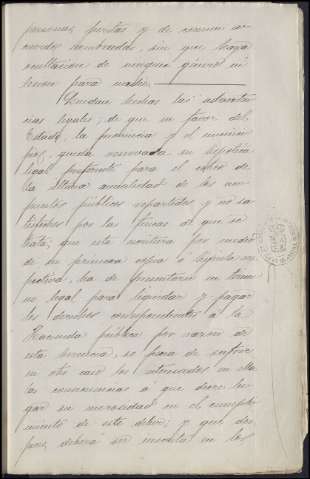 personas peritas y de comun a-
cuerdo nombradas, sin que haya
ocultacion de ningun género ni
lesion para nadie.
Quedan hechas las adverten-
cias legales; de que en favor del
Estado, la provincia y el munici-
pio, queda reservada su hipoteca
legal preferente para el cobro de
la última anualidad de los im-
puestos públicos repartidos y no sa-
tisfechos por las fincas de que se
trata; que esta escritura por medio
de su primera copia ó segunda res-
pectiva, ha de presentarse en térmi-
no legal para liquidar y pagar
los derechos correspondientes á la
Hacienda pública por razon de
esta herencia, so pena de sufrir
en otro caso los interesados en ella
las consecuencias á que diere lu-
gar su morosidad en el cumpli-
miento de este deber; y que des-
pues deberá ser inscrita en los